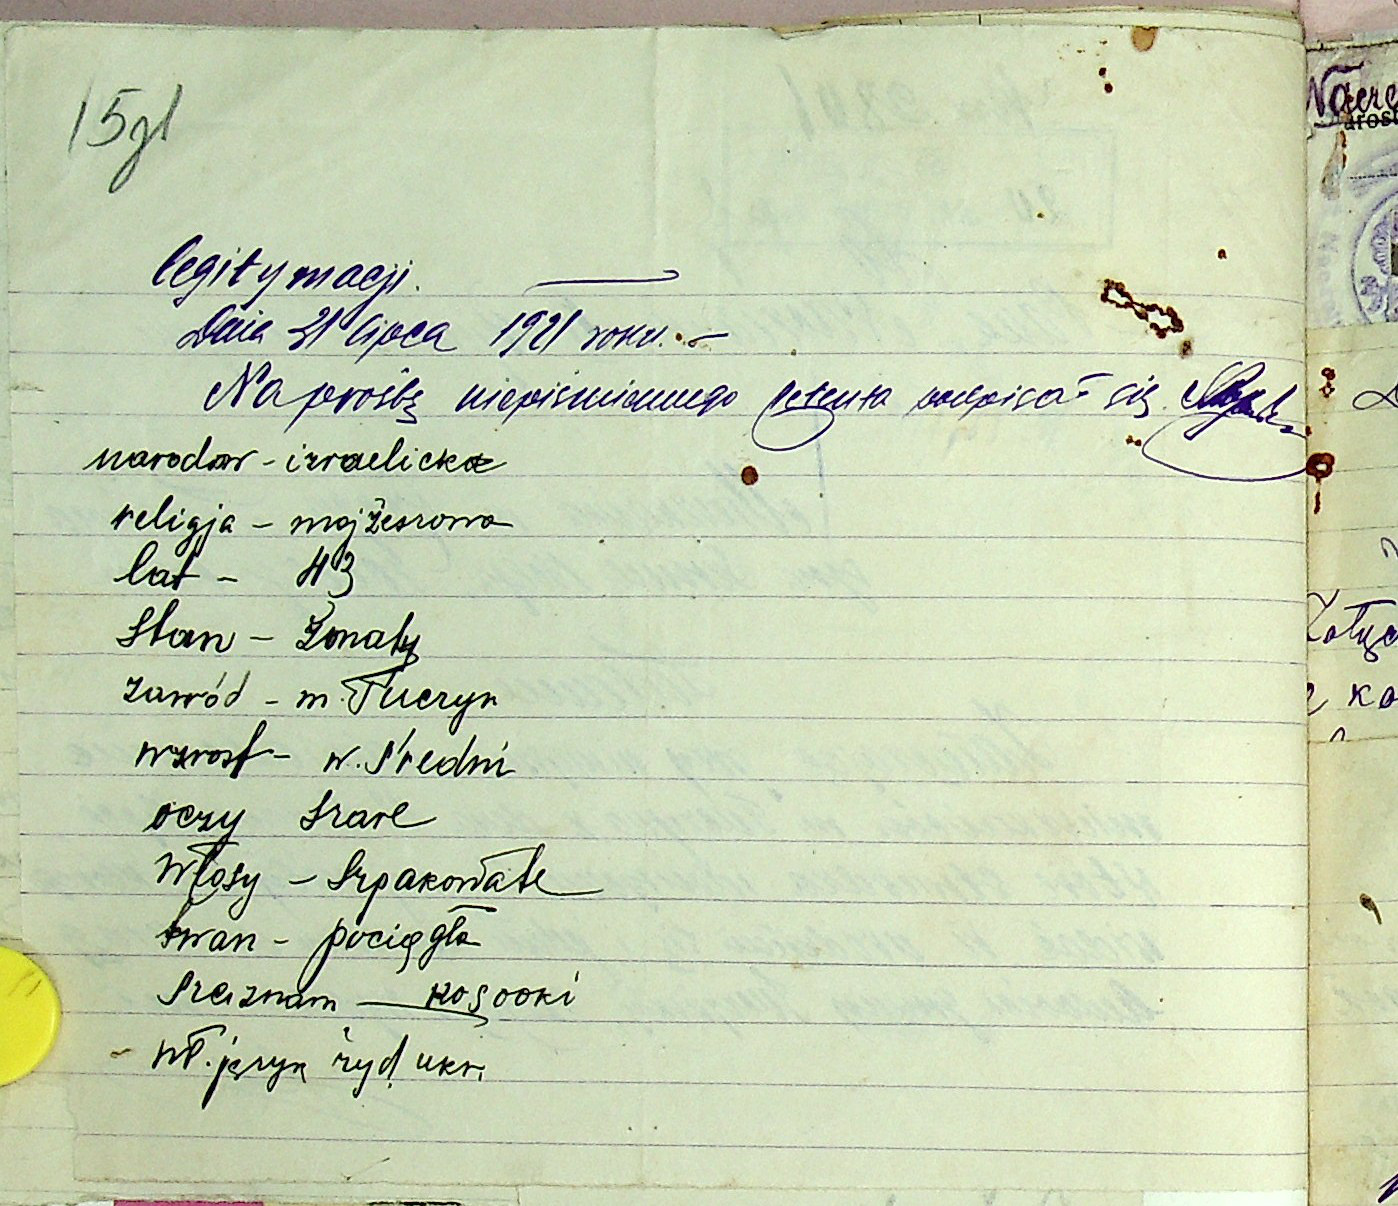 15 zł
legitymacji.
Dnia 21 lipca 1921 roku.
Na prośbę niepiśmiennego petenta podpisał się
narodow - izraelicka
religja - mojżeszowa
lat - 43
Stan - Żonaty
zawód - m. Tuczyn
wzrost - w. Średni
oczy Szare
Włosy - Szpakowate
twarz - pociągła
kosooki
wł. język żyd. ukr.